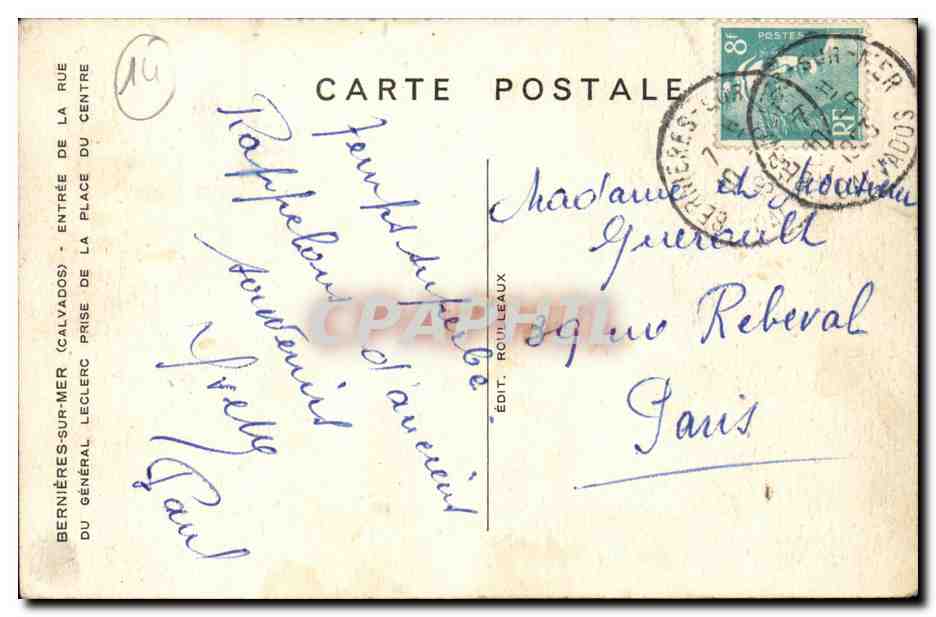 14
CARTE POSTALE
8F
POSTES
RF
BERNIÈRES-SUR-MER
CALVADOS
BERNIÈRES-SUR-MER (CALVADOS) - ENTRÉE DE LA RUE
DU GÉNÉRAL LECLERC PRISE DE LA PLACE DU CENTRE
Temps superbe
Rappelons d'anciens
souvenirs
Yvette
Paul
ÉDIT. ROULLEAUX
Madame et Monsieur
Guerault
39 rue Rebeval
Paris
CPAPHIL